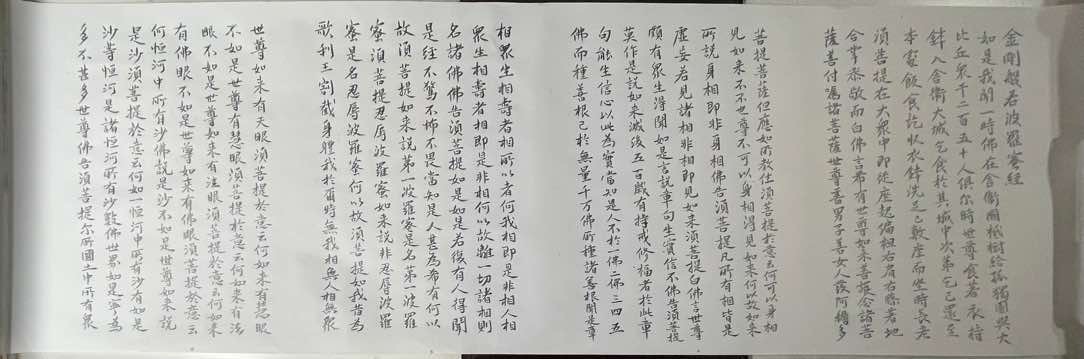 金剛般若波羅蜜經
如是我聞一時佛在舍衛國祇樹給孤獨園與大
比丘眾千二百五十人俱尔時世尊食若衣持
鉢入舍衛大城乞食於其城中次第乞已還至
本處飯食訖状衣鉢洗足已敷座而坐時長老
須菩提在大眾中即從座起偏袒右肩右膝著地
合掌恭敬而白佛言希有世尊如来善護念諸菩
薩善付囑諸菩薩世尊善男子善女人發阿耨多
菩提菩薩但應如所教住須菩提於意云何可以身相
見如来不不也世尊不可以身相得見如来何以故如来
所說身相即非身相佛告須菩提凡所有相皆是
虛妄若見諸相非相即見如来須菩提白佛言世尊
頗有眾生得聞如是言說章句生實信不佛告須菩提
莫作是說如来滅後五百歲有持戒修福者於此章
句能生信心以此為實當知是人不於一佛二佛三四五
佛而種善根已於無量千万佛所種諸善根聞是章
相眾生相壽者相所以者何我相即是非相人相
眾生相壽者相即是非相何以故離一切諸相則
名諸佛佛告須菩提如是如是若復有人得聞
是経不驚不怖不畏當知是人甚為希有何以
故須菩提如来說第一波羅蜜是名第一波羅
蜜須菩提忍辱波羅蜜如来說非忍辱波羅
蜜是名忍辱波羅蜜何以故須菩提如我昔為
歌利王割截身體我於爾時無我相無人相無眾
世尊如来有天眼須菩提於意云何如来有慧眼
不如是世尊有慧眼須菩提於意云何如来有法
眼不如是世尊如来有法眼須菩提於意云何如来
有佛眼不如是世尊如来有佛眼須菩提於意云
何恒河中所有沙佛說是沙不如是世尊如来說
是沙須菩提於意云何如一恒河中所有沙有如是
沙等恒河是諸恒河所有沙數佛世界如是寧為
多不甚多世尊佛告須菩提尔所國土中所有眾